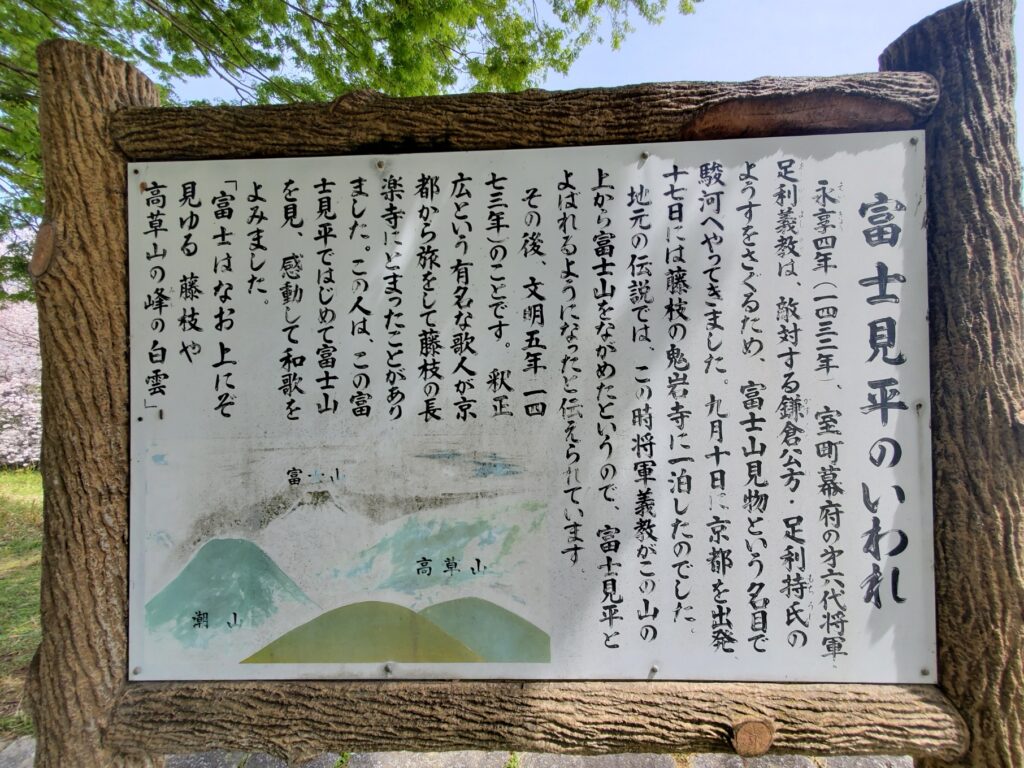 富士見平のいわれ
永享四年(一四三二年)、室町幕府の㐧六代将軍
足利義教は、敵対する鎌倉公方・足利持氏の
ようすをさぐるため、富士山見物という名目で
駿河へやってきました。九月十日に京都を出発
十七日には藤枝の鬼岩寺に一泊したのでした。
地元の伝説では、この時将軍義教がこの山の
上から富士山をながめたというので、富士見平と
よばれるようになったと伝えられています
その後、文明五年一四
七三年)のことです。釈正
広という有名な歌人が京
都から旅をして藤枝の長
楽寺にとまったことがあり
ました。この人は、この富
士見平ではじめて富士山
を見、感動して和歌を
よみました。
「富士はなお上にぞ
見ゆる藤枝や
高草山の峰の白雲」
富士山
高草山
潮山